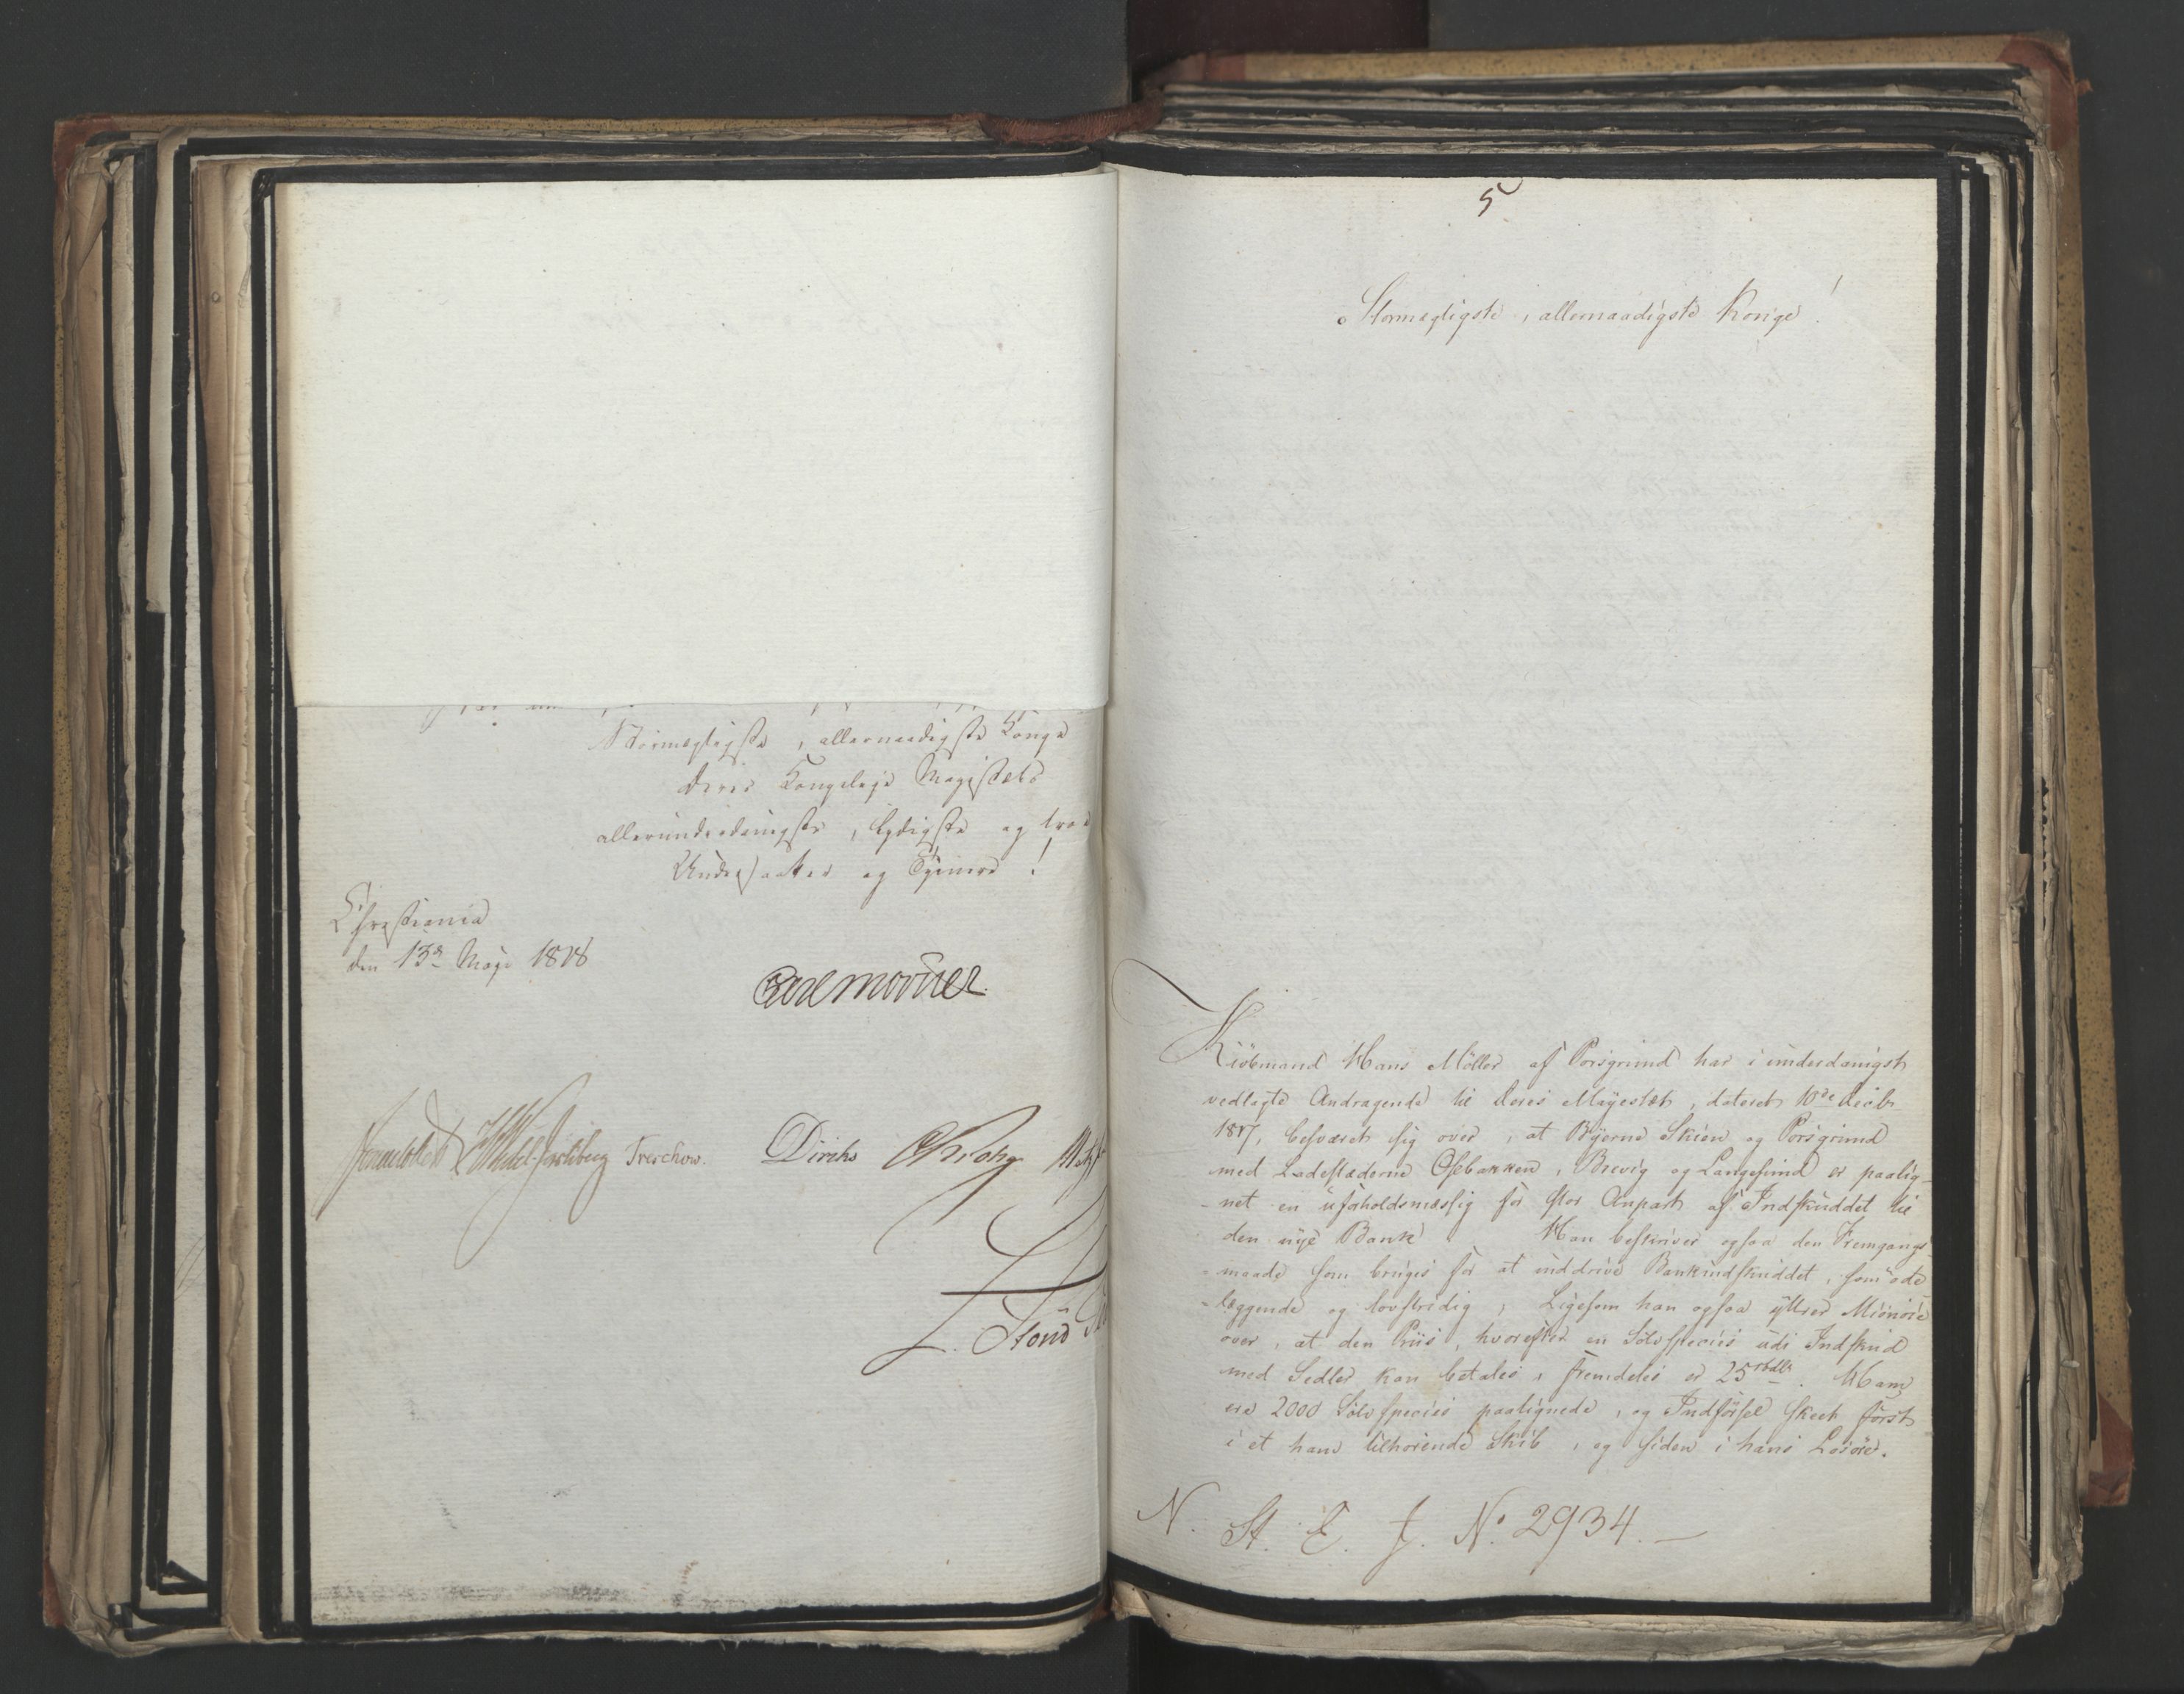 Stormægtigste, allernaadigste Konge
Deres Kongelige Majestæts
allerunderdanigste, lydigste og troe
Undersaatter og Tjenere!
Christiania
den 13de Maji 1818
Carl Mörner.
Sommerhielm HWedel Jarlsberg Treschow. Diriks CKrohg
5
Stormægtigste, allernaadigste Konge!
Kiöbmand Hans Möller af Porsgrund har i underdanigst
vedlagte Andragende til Deres Majestæt, dateret 10de Decbr
1817, besværet sig over, at Byerne Skien og Porsgrund
med Ladestæderne Osebakken, Brevig og Langesund er paalig-
-net en uforholdsmæssig for stor Anpart af Indskuddet til
den nye Bank. Han beskriver ogsaa den Fremgangs-
-maade som bruges for at inddrive Bankindskuddet, som öde-
-læggende og lovstridig, Ligesom han ogsaa yttrer Misnöie
over, at den Priis, hvorefter en Sölvspecies udi Indskud
med Sedler kan betales, fremdeles er 25 rbdlr. Ham
ere 2000 Sölvspecies paalignede, og Indförsel skeet först
i et ham tilhörende Skib, og siden i hans Lösöre.
N. St. E. J. No 2934.